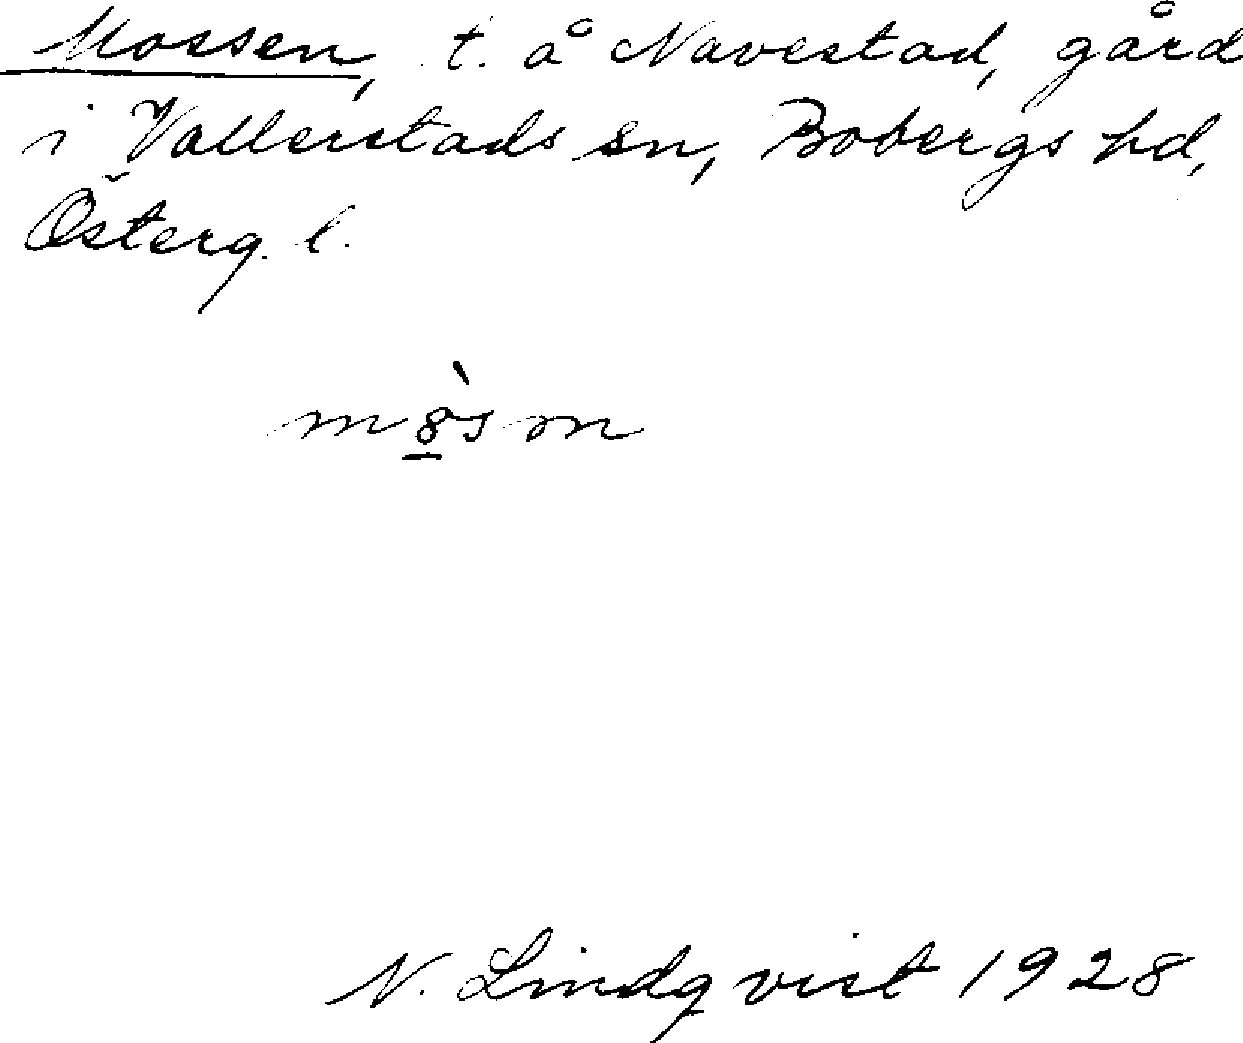 Mossen, t. å Navestad, gård
i Vallerstads sn, Bobergs hd,
Österg. l.
m8̲̀sm
N. Lindqvist 1928